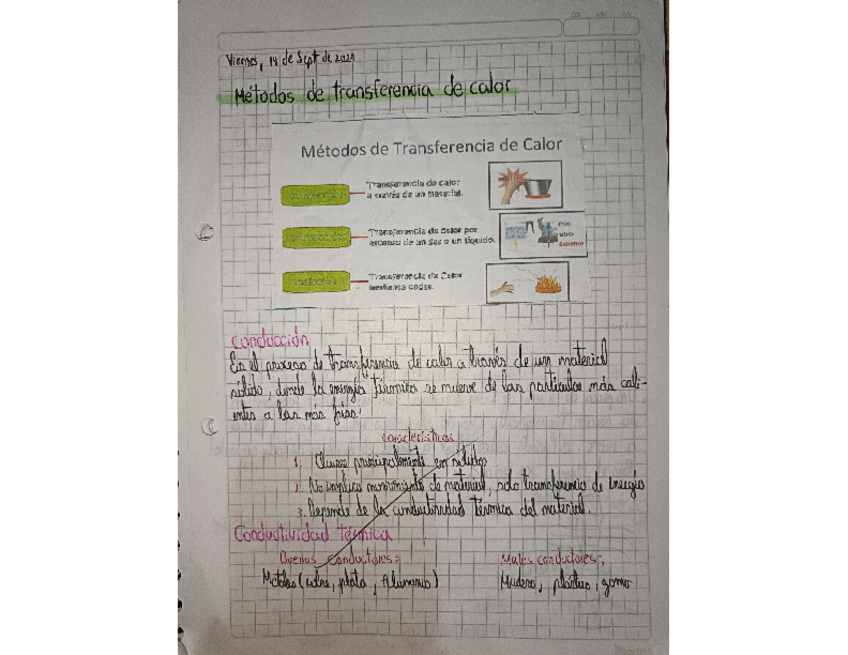 Viernes, 14 de Sept de 2024
Métodos de transferencia de calor
Métodos de Transferencia de Calor
Conducción
Transferencia de calor
a través de un material.
Transferencia de Calor por
ascenso de un Gas o un líquido.
Frio
Caliente
Radiación
Transferencia de Calor
mediante ondas.
Conducción
Es el proceso de transferencia de calor a través de un material
sólido, donde la energía térmica se mueve de las particulas más cali-
entes a las más frias.
Caracteristicas
1. Ocurre principalmente en solidos
2. No implica movimiento de material, solo transferencia de Energia
3. Depende de la conductividad térmica del material.
Conductividad térmica
Buenos conductores:
Malos conductores:,
Metales (cobre, plata, Aluminio)
Madera, plástico, goma